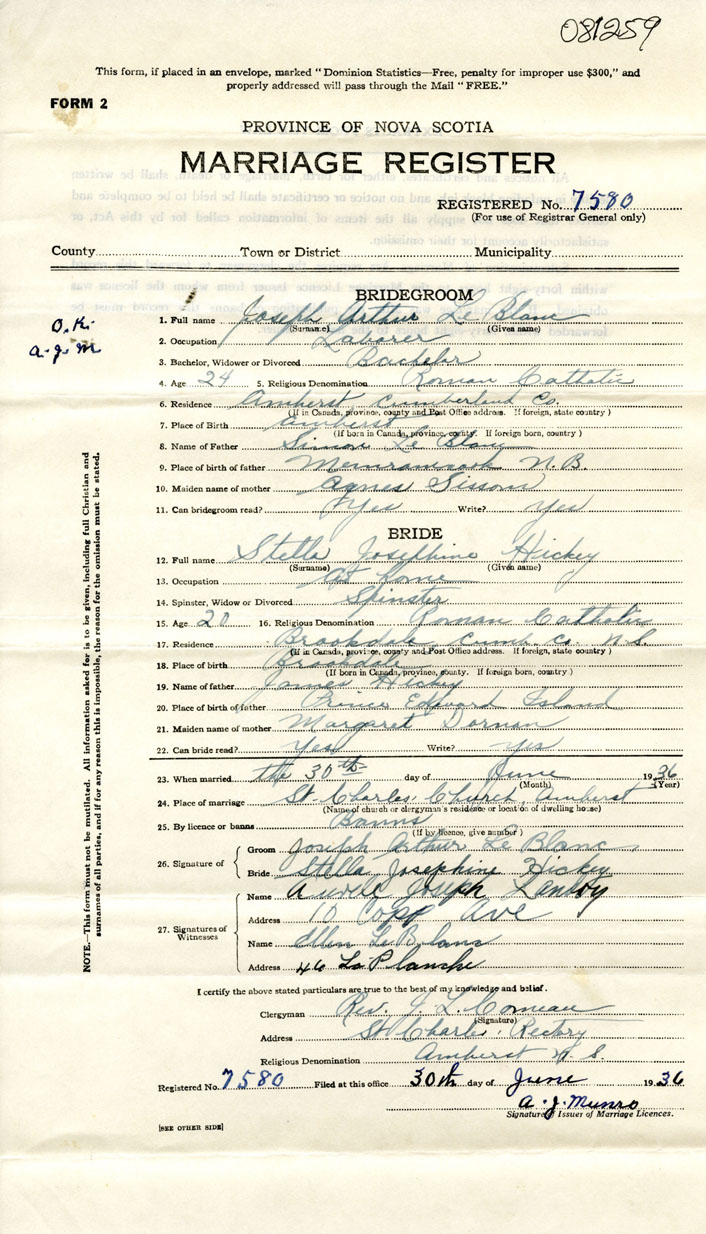 081259
This form, if placed in an envelope, marked "Dominion Statistics—Free, penalty for improper use $300," and
properly addressed will pass through the Mail "FREE."
FORM 2
PROVINCE OF NOVA SCOTIA
MARRIAGE REGISTER
REGISTERED No. 7580
(For use of Registrar General only)
County Town or District Municipality
BRIDEGROOM
O.K.
A.J.M
1. Full name Joseph Arthur Le Blanc
(Surname) (Given name)
2. Occupation Laborer
3. Bachelor, Widower or Divorced Bachelor
4. Age 24 5. Religious Denomination Roman Catholic
6. Residence Amherst Cumberland Co.
(If in Canada, province, county and Post Office address. If foreign, state country)
7. Place of Birth Amherst
(If born in Canada, province, county. If foreign born, country)
8. Name of Father Simon Le Blanc
9. Place of birth of father Memramcook N.B.
10. Maiden name of mother Agnes Sissom
11. Can bridegroom read? Yes Write? Yes
BRIDE
12. Full name Stella Josephine Hickey
(Surname) (Given name)
13. Occupation At Home
14. Spinster, Widow or Divorced Spinster
15. Age 20 16. Religious Denomination Roman Catholic
17. Residence Brookdale Cumb Co. N.S.
(If in Canada, province, county and Post Office address. If foreign, state country)
18. Place of birth Brookdale
(If born in Canada, province, county. If foreign born, country)
19. Name of father James Hickey
20. Place of birth of father Prince Edward Island
21. Maiden name of mother Margaret Dornan
22. Can bride read? Yes Write? Yes
23. When married the 30th day of June 1936
(Month) (Year)
24. Place of marriage St. Charles Church, Amherst
(Name of church or clergyman's residence or location of dwelling house)
25. By licence or banns Banns
(If by licence, give number)
26. Signature of
Groom Joseph Arthur Le Blanc
Bride Stella Josephine Hickey
27. Signatures of Witnesses
Name Aurele Joseph Landry
Address 10 Copp Ave
Name Ellen LeBlanc
Address 46 La Planche
I certify the above stated particulars are true to the best of my knowledge and belief.
Clergyman Rev. J. L. Comeau
(Signature)
Address St. Charles Rectory
Religious Denomination Amherst N.S.
Registered No. 7580 Filed at this office 30th day of June 1936
A. J. Munro
Signature of Issuer of Marriage Licences.
[SEE OTHER SIDE]
NOTE.—This form must not be mutilated. All information asked for is to be given, including full Christian and
surnames of all parties, and if for any reason this is impossible, the reason for the omission must be stated.